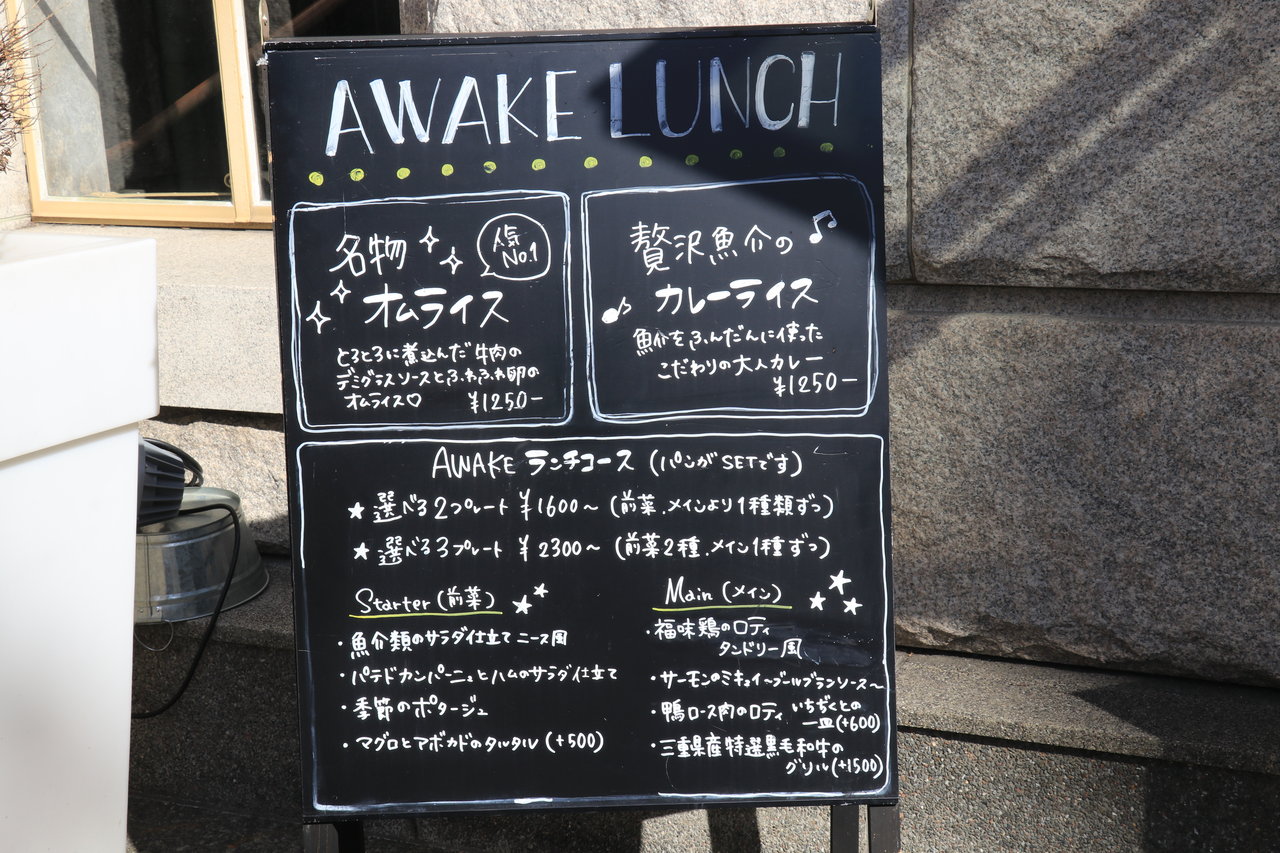 AWAKE LUNCH
名物
人気
No.1
オムライス
とろとろに煮込んだ牛肉の
デミグラスソースとふわふわ卵の
オムライス♡ ¥1250-
贅沢魚介の
カレーライス
魚介をふんだんに使った
こだわりの大人カレー
¥1250-
AWAKE ランチコース (パンがSETです)
★選べる2プレート ¥1600〜 (前菜.メインより1種類ずつ)
★選べる3プレート ¥2300〜 (前菜2種.メイン1種ずつ)
Starter (前菜)
・魚介類のサラダ仕立て ニース風
・パテドカンパーニュとハムのサラダ仕立て
・季節のポタージュ
・マグロとアボカドのタルタル (+500)
Main (メイン)
・福味鶏のロティ
タンドリー風
・サーモンのミキュイ〜ブールブランソース〜
・鴨ロース肉のロティ いちぢくとの
一皿(+600)
・三重県産特選黒毛和牛の
グリル(+1500)